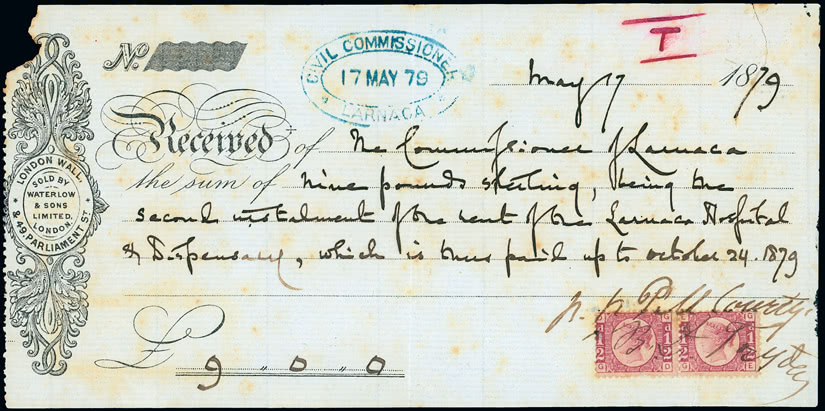 T
No
CIVIL COMMISSIONER
17 MAY 79
LARNACA
May 17 1879
Received of The Commissioner of Larnaca
the sum of nine pounds sterling, being the
second instalment of the rent of the Larnaca Hospital
& Dispensary, which is thus paid up to october 24. 1879
£ 9 . 0 . 0
LONDON WALL,
SOLD BY
WATERLOW
& SONS
LIMITED.
LONDON.
& 49 PARLIAMENT ST
p. p.
1/2 d 1/2
G D
1/2 d 1/2
G E